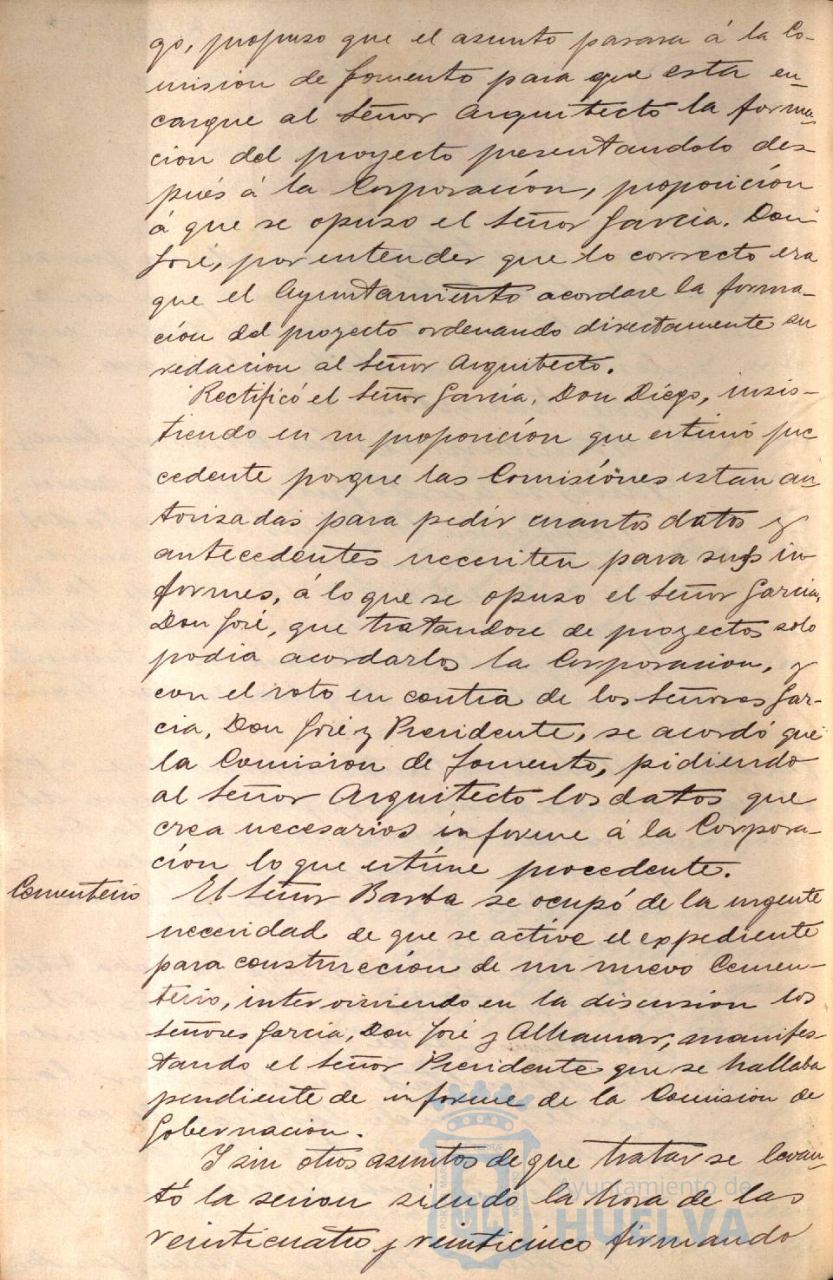 go, propuso que el asunto pasara á la Co-
mision de fomento para que esta en-
cargue al Señor Arquitecto la forma-
cion del proyecto presentandolo des-
pués á la Corporación, proposición
á que se opuso el Señor García. Don
José, por entender que lo correcto era
que el Ayuntamiento acordase la forma-
ción del proyecto ordenando directamente su
redaccion al Señor Arquitecto.
Rectificó el Señor García, Don Diego, insis-
tiendo en su proposición que estimó pro
cedente porque las Comisiónes estan au-
torisadas para pedir cuantos datos y
antecedentes necesiten para sus in
formes, á lo que se opuso el Señor Garcia,
Don José, que tratandose de proyectos solo
podia acordarlos la Corporacion, y
con el voto en contra de los Señores Gar-
cia, Don José y Presidente, se acordó que
la Comision de fomento, pidiendo
al Señor Arquitecto los datos que
crea necesarios informe á la Corpora-
ción lo que estime procedente.
Cementerio
El Señor Barba se ocupó de la urgente
necesidad de que se active el expediente
para construccion de un nuevo Cemen-
terio, interviniendo en la discusion los
Señores Garcia, Don José y Alhamar, manifes-
tando el Señor Presidente que se hallaba
pendiente de informe de la Comision de
Gobernacion.
Y sin otros asuntos de que tratar se levan-
tó la sesion siendo la hora de las
veinticuatro y veinticinco firmando
Ayuntamiento de
HUELVA